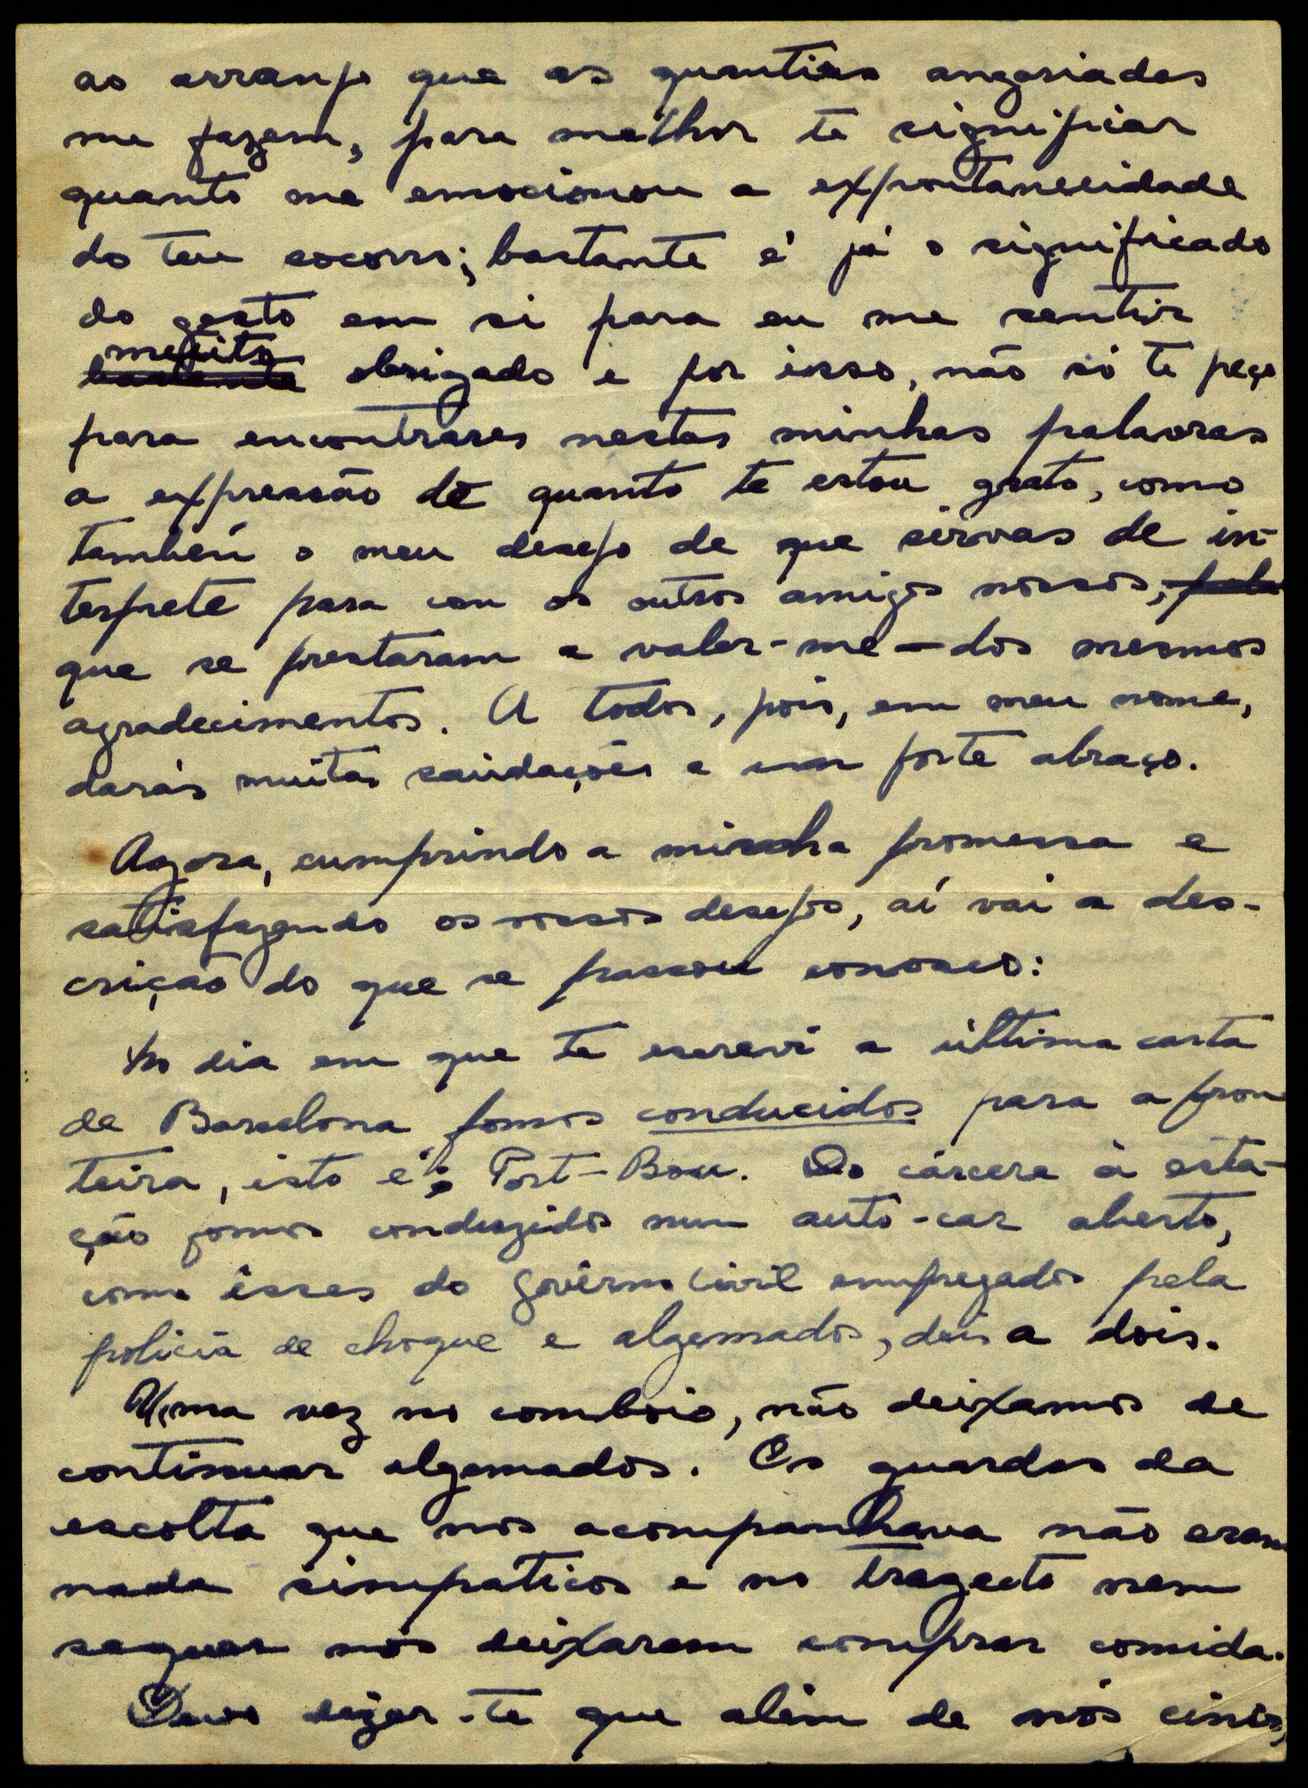 ao arranjo que as quantias angariadas
me fazem, para melhor te significar
quanto me emocionou a expontaneidade
do teu socorro; bastante é já o significado
do gesto em si para eu me sentir
muito
bastante obrigado e por isso, não só te peço
para encontrares nestas minhas palavras
a expressão de quanto te estou grato, como
tambén o meu desejo de que sirvas de in-
terprete para con os outros amigos nossos,
que se prestaram a valer-me — dos mesmos
agradecimentos. A todos, pois, em meu nome,
darás muitas saüdações e um forte abraço.
Agora, cumprindo a minha promessa e
satisfazendo os vossos desejos, aí vai a des-
crição do que se passou conosco:
No dia em que te escreví a última carta
de Barcelona fomos conducidos para a fron
teira, isto é: Port-Bou. Do cárcere à esta-
ção fomos conduzidos num auto-car aberto,
como êsses do Govêrno Civil empregados pela
policia de choque e algemados, dois a dois.
Uma vez no comboio, não deixamos de
continuar algemados. Os guardas da
escolta que nos acompanhava não eram
nada simpaticos e no tragecto nem
sequer nos deixaram comprar comida.
Devo dizer-te que além de nós cinco,